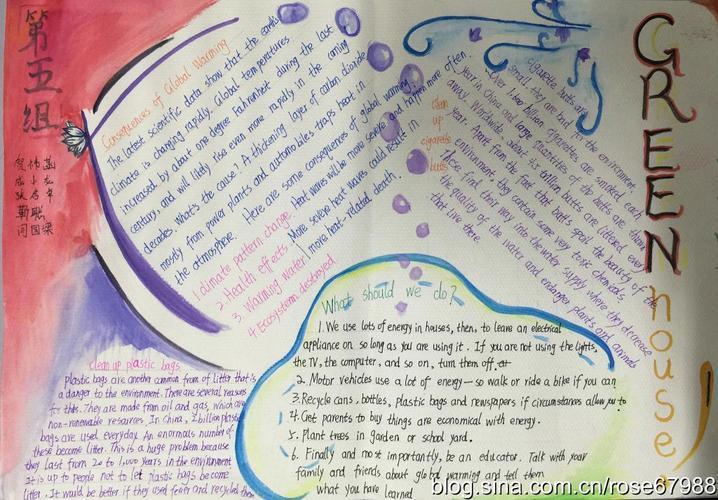 第五组
Consequences of Global Warming
The latest scientific data show that the earth's
climate is changing rapidly. Global temperatures
increased by about one degree Fahrenheit during the last
century, and will likely rise even more rapidly in the coming
decades. What's the cause? A thickening layer of carbon dioxide
mostly from power plants and automobiles traps heat in
the atmosphere. Here are some consequences of global warming.
1. climate pattern change
2. Health effects
3. Warming water
4. Ecosystem destroyed
Heat waves will be more severe and happen more often.
More severe heat waves could result in
more heat-related death.
clean
up
cigarette
butts
cigarette butts are
small, they are bad for the environment.
Over 1,600 billion cigarettes are smoked each
year in China and
away. Worldwide, about six trillion butts are littered every
year. Apart from the fact that butts spoil the beauty of the
environment, they contain some very toxic chemicals.
These find their way into the water supply where they decrease
the quality of the water and endanger plants and animals
that live there.
GREEN house
What should we do?
1. We use lots of energy in houses, then, to leave an electrical
appliance on so long as you are using it. If you are not using the lights,
the TV, the computer, and so on, turn them off.
2. Motor vehicles use a lot of energy— so walk or ride a bike if you can
3. Recycle cans, bottles, plastic bags and newspapers if circumstances allow you to
4. Get parents to buy things are economical with energy.
5. Plant trees in garden or school yard.
6. Finally and most importantly, be an educator. Talk with your
family and friends about global warming and tell them
what you have learned
clean up plastic bags
plastic bags are another common from of litter that is
a danger to the environment. There are several reasons
for this. They are made from oil and gas, which are
non-renewable resources. In china, 2 billion plastic
bags are used everyday. An enormals number of
these become litter. This is a huge problem because
they last from 20 to 1,000 years in the environment
It is up to people not to let plastic bags become
litter. It would be better if they used fewer and recycled them
blog.sina.com.cn/rose67988